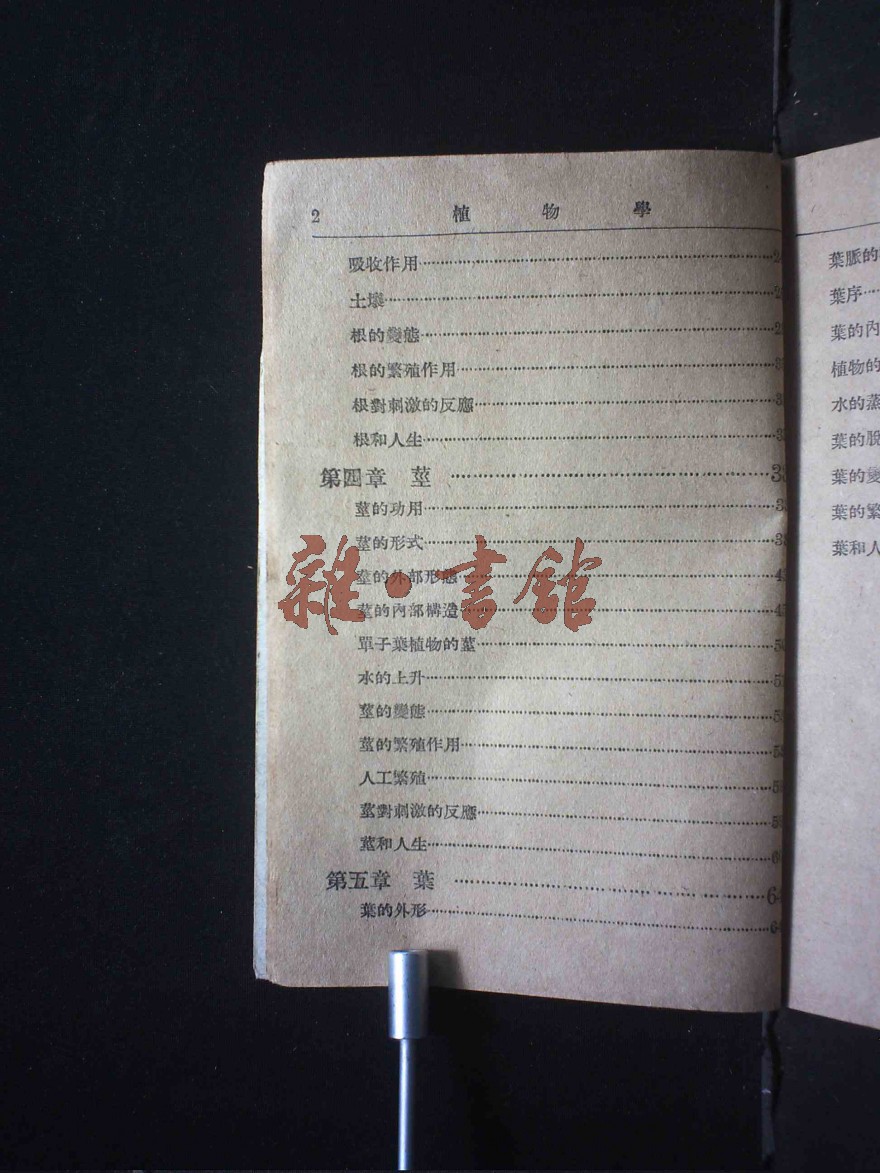 2 植物學
吸收作用
土壤
根的變態
根的繁殖作用
根對刺激的反應
根和人生
第四章 莖
莖的功用
莖的形式
莖的外部形態
莖的內部構造
單子葉植物的莖
水的上升
莖的變態
莖的繁殖作用
人工繁殖
莖對刺激的反應
莖和人生
第五章 葉
葉的外形
雜·書館
葉脈的
葉序
葉的內
植物的
水的蒸
葉的脫
葉的變
葉的繁
葉和人